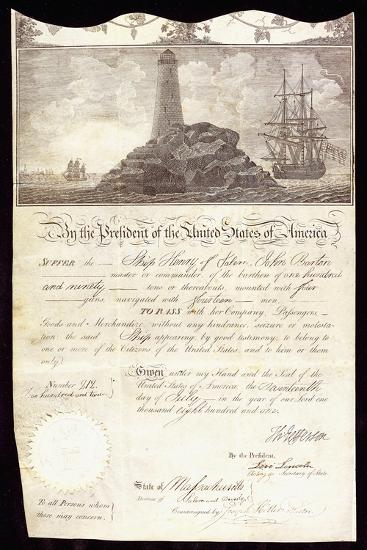 By the President of the United States of America
SUFFER the Ship Henry of Salem, John Barton
master or commander, of the burthen of one hundred
and ninety tons or thereabouts, mounted with four
guns, navigated with fourteen men,
TO PASS with her Company, Passengers
Goods and Merchandize without any hindrance, seizure or molesta-
tion: the said Ship appearing, by good testimony, to belong to
one or more of the Citizens of the United States, and to him or them
only.
Number
hundred and two
Given under my Hand and the Seal of the
United States of America, the
day of July in the year of our Lord one
thousand eight hundred and one.
Th Jefferson
By the President,
Levi Lincoln
Acting as Secretary of State.
State of Massachusetts
District of Salem and Beverly
Countersigned by Joseph Hiller
To all Persons whom
these may concern.